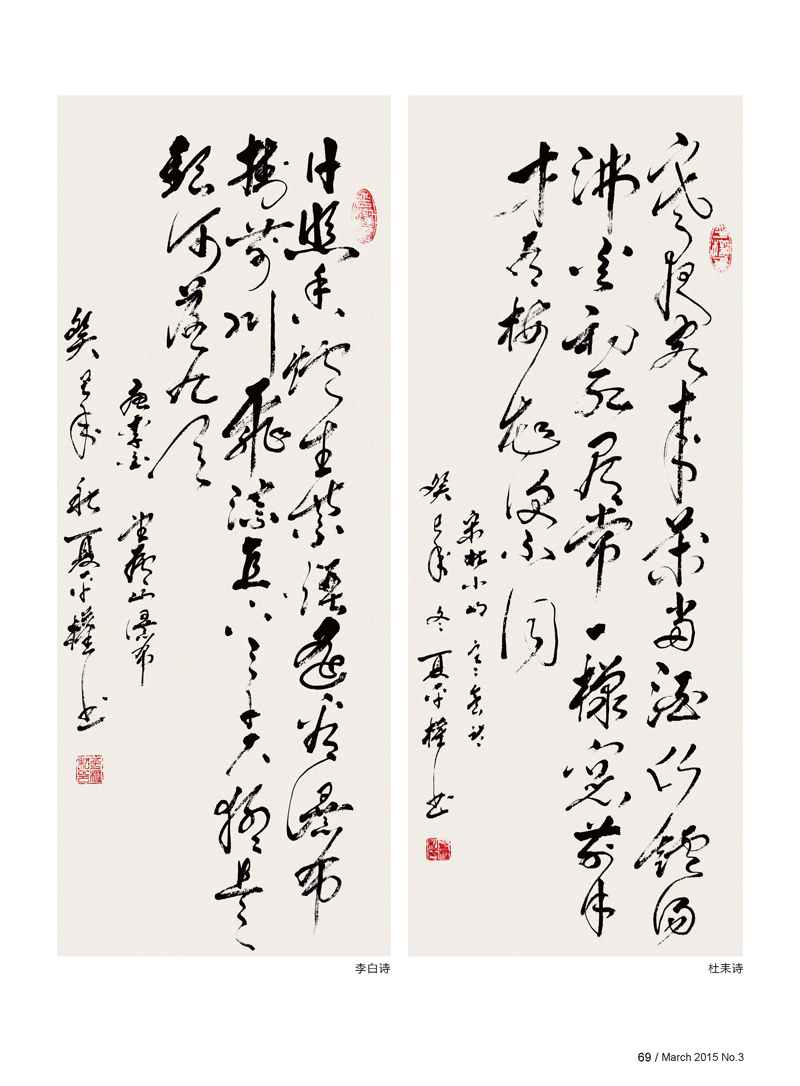 日照香炉生紫烟遥看瀑布
挂前川飞流直下三千尺疑是
银河落九天
唐李白 望庐山瀑布
癸巳年秋夏平權书
李白诗
寒夜客来茶当酒竹鑪汤
沸火初红寻常一样窗前月
才有梅花便不同
宋杜小山 寒夜诗
癸巳年冬夏平權书
杜耒诗
69 / March 2015 No.3